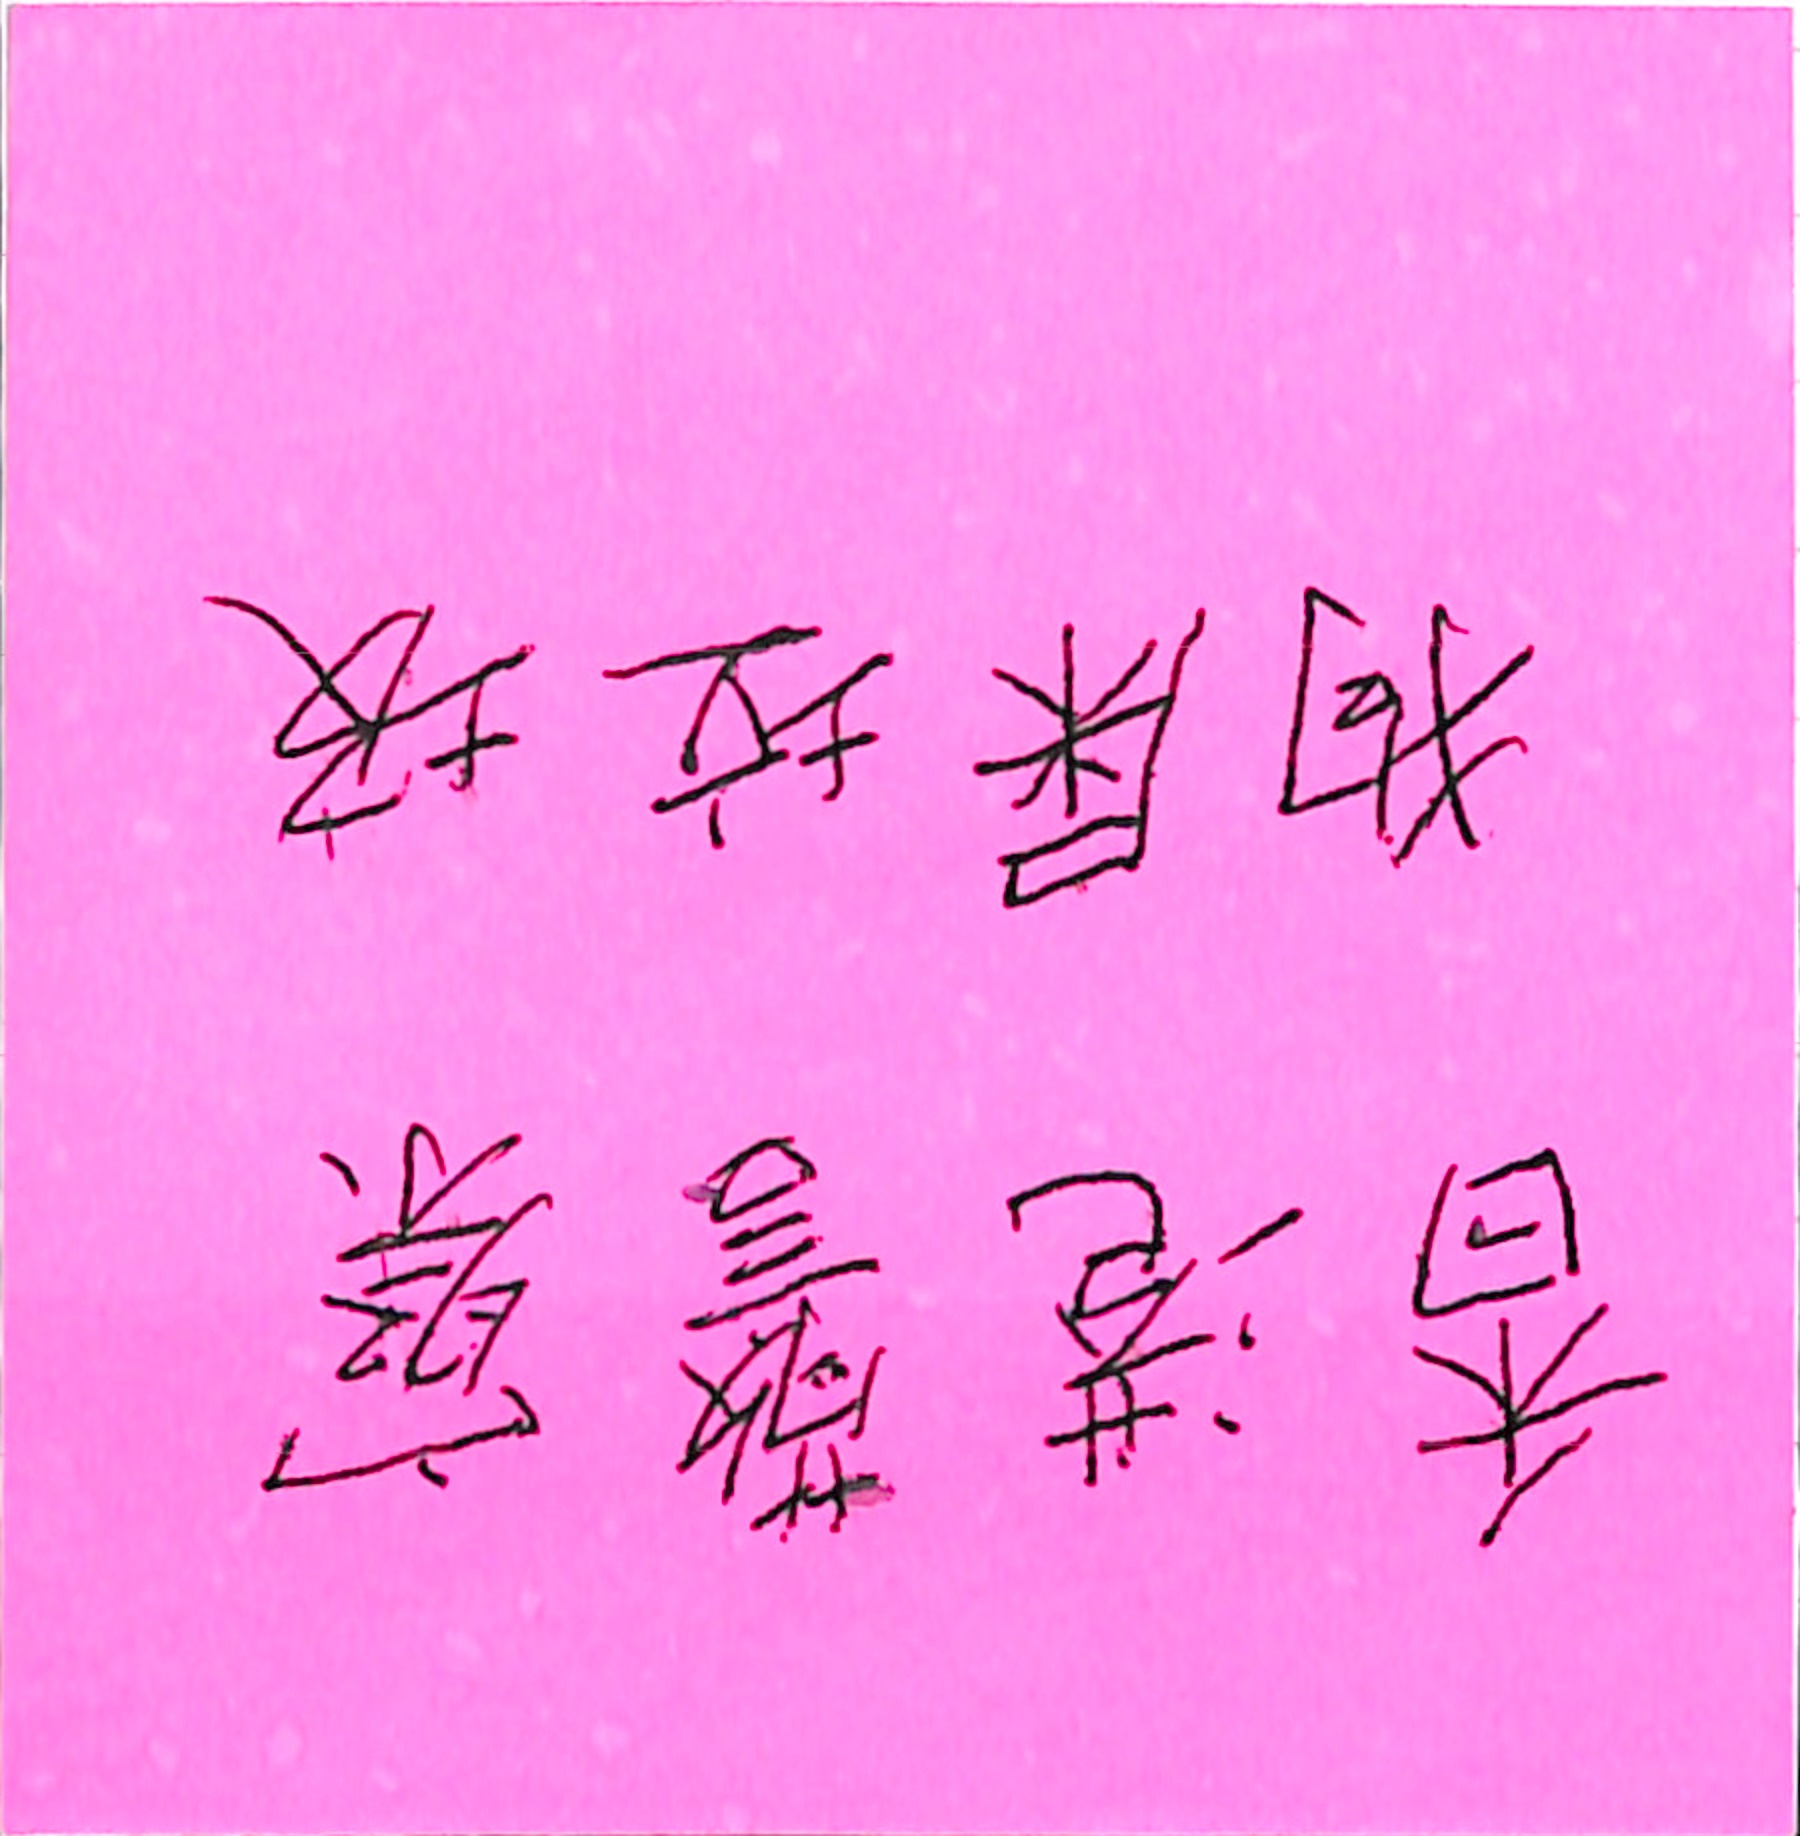 香港警察
狗屎垃圾